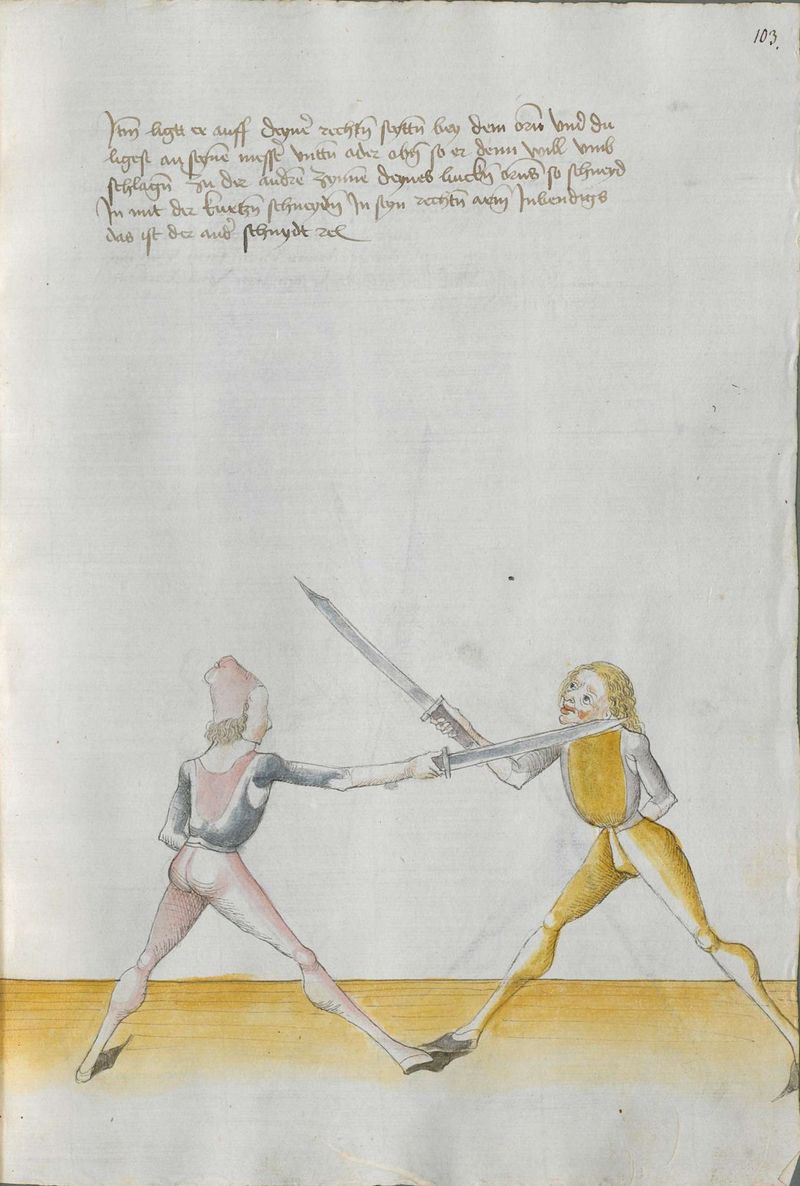 103.
Itm̄ ligtt er auff deyner̄ rechtn̄ seyttn̄ bey dem orn̄ vnd du
ligest an seynē messer̄ vnttn̄ ader obn̄ so er denn will vmb
schlagn̄ zu der andrē zynnē deynes linckn̄ orns so schneyd
In mit der kurtzn̄ schneydn̄ In seyn rechtn̄ arm̄ Inbendigs
das ist der ander̄ schnydt